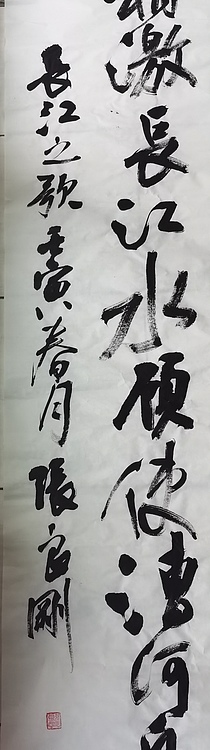 激長江水願使河
長江之歌 壬寅春月 張良剛